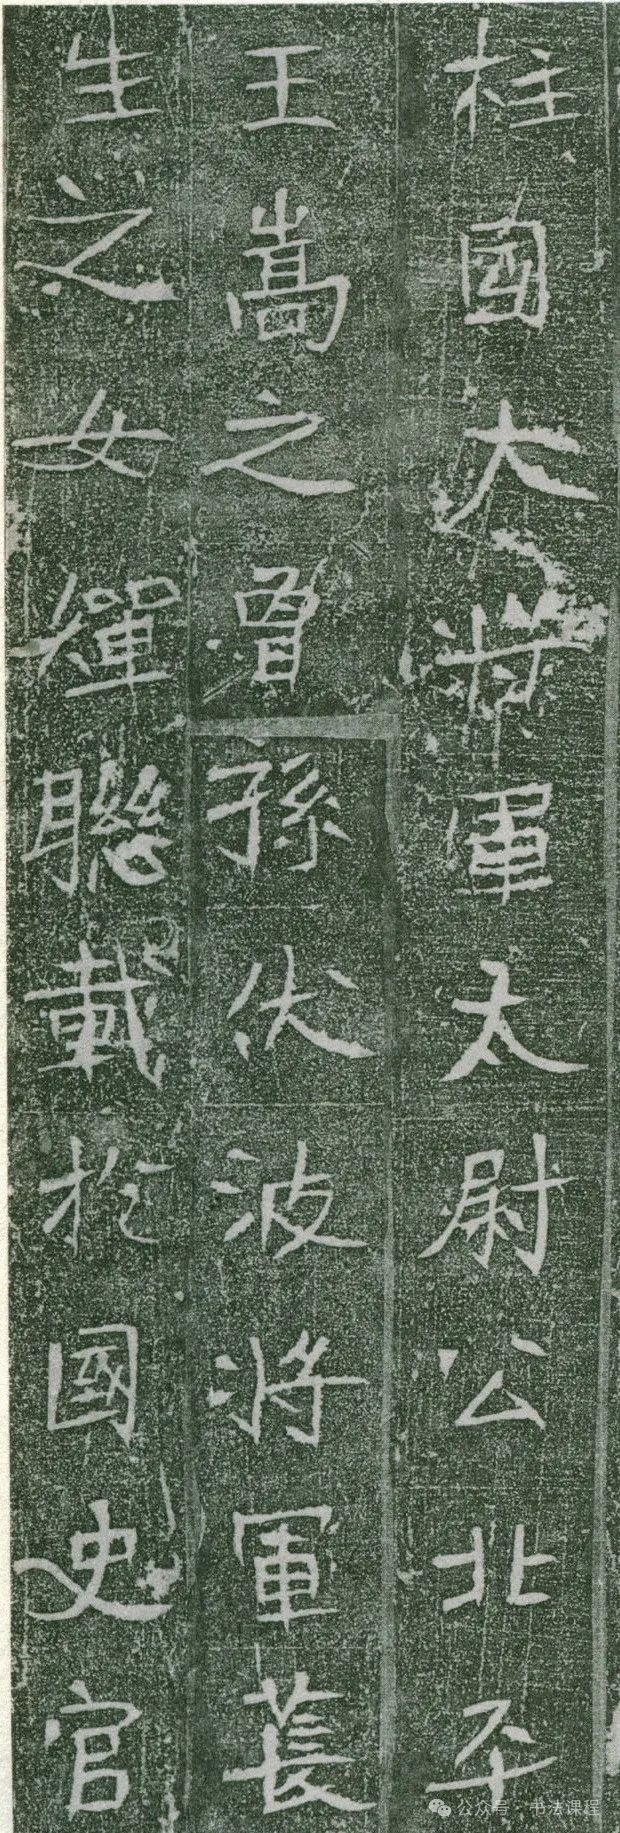 柱國大將軍太尉公北平
王嵩之曾孫伏波將軍萇
生之女嬋聯載於國史官
公众号·书法课程